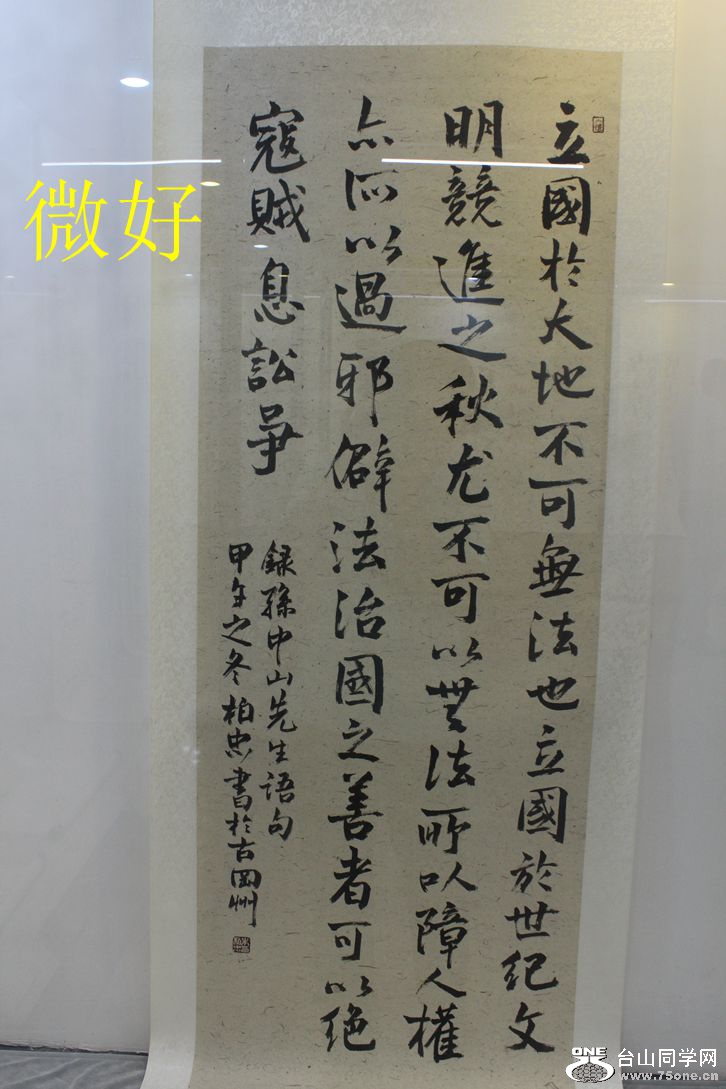 立國於大地不可無法也立國於世纪文
明競進之秋尤不可以無法所以障人權
亦所以過邪僻法治國之善者可以绝
寇賊息訟爭
録孫中山先生語句
甲午之冬柏忠書於古岡州
微好
ONE
台山同学网
www.75one.cn